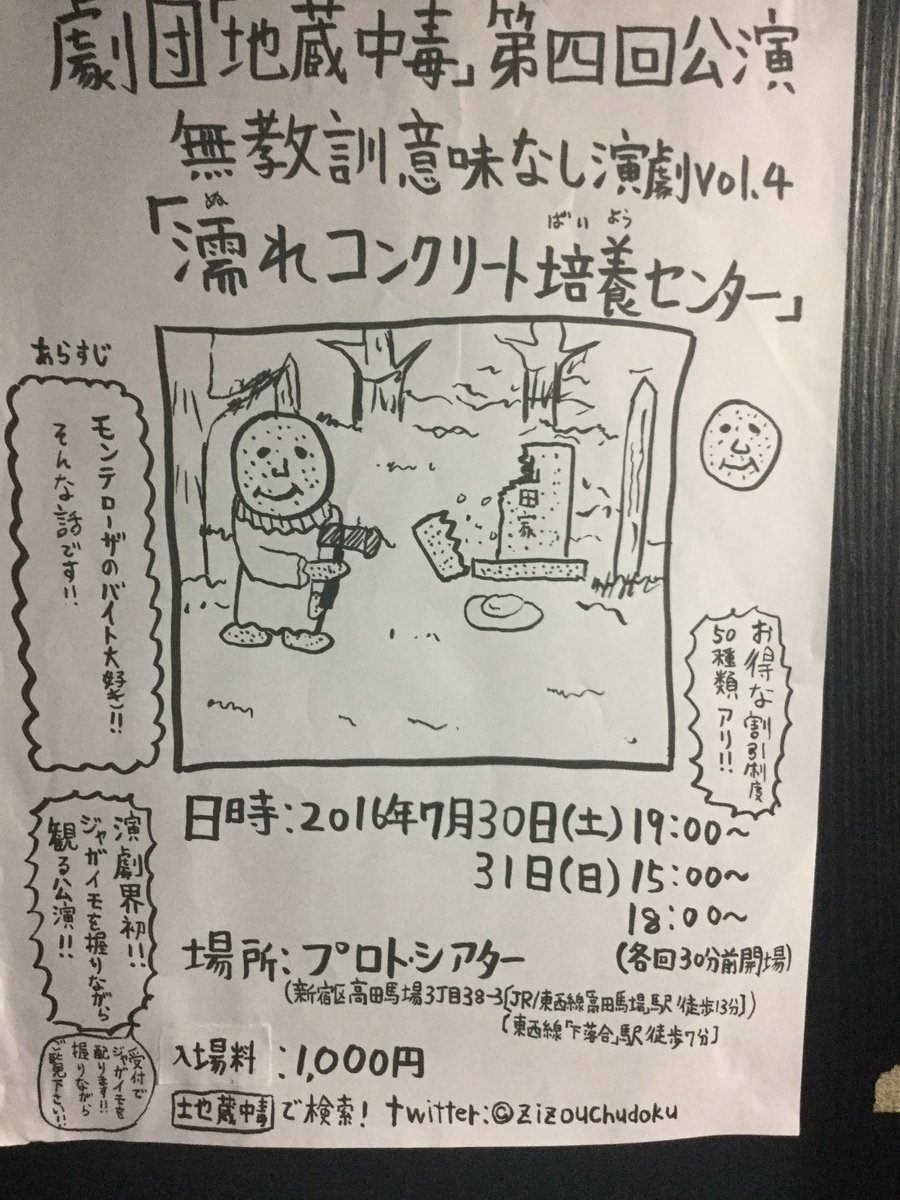 劇団「地蔵中毒」第四回公演
無教訓意味なし演劇vol.4
「濡れコンクリート培養センター」
ぬ
ばいよう
あらすじ
モンテローザのバイト大好き!!
そんな話です!!
山田家
お得な割引制度
50種類アリ!!
演劇界初!!
ジャガイモを握りながら
観る公演!!
受付で
ジャガイモを
配ります!!
握りながら
ご覧下さい!!
日時:2016年7月30日(土)19:00~
31日(日)15:00~
18:00~
(各回30分前開場)
場所:プロト・シアター
(新宿区高田馬場3丁目38-3[JR/東西線「高田馬場」駅/徒歩13分])
[東西線「下落合」駅/徒歩7分]
入場料:1,000円
地蔵中毒で検索! twitter:@zizouchudoku